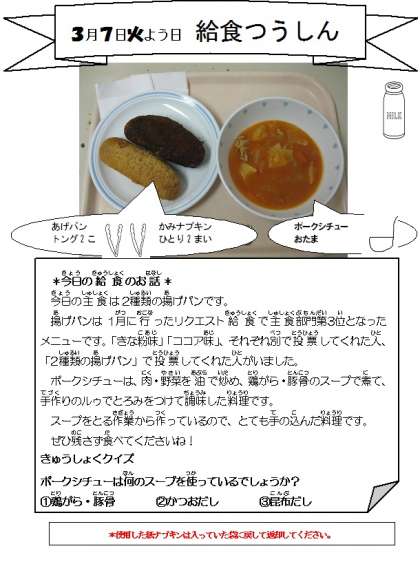 3月7日火よう日 給食つうしん
MILK
あげパン
トング2こ
かみナプキン
ひとり2まい
ポークシチュー
おたま
*今日の給食のお話*
今日の主食は2種類の揚げパンです。
揚げパンは1月に行ったリクエスト給食で主食部門第3位となった
メニューです。「きな粉味」「ココア味」、それぞれ別で投票してくれた人、
「2種類の揚げパン」で投票してくれた人がいました。
ポークシチューは、肉・野菜を油で炒め、鶏がら・豚骨のスープで煮て、
手作りのルゥでとろみをつけて調味した料理です。
スープをとる作業から作っているので、とても手の込んだ料理です。
ぜひ残さず食べてくださいね！
きゅうしょくクイズ
ポークシチューは何のスープを使っているでしょうか？
①鶏がら・豚骨 ②かつおだし ③昆布だし
*使用した紙ナプキンは入っていた袋に戻して返却してください。